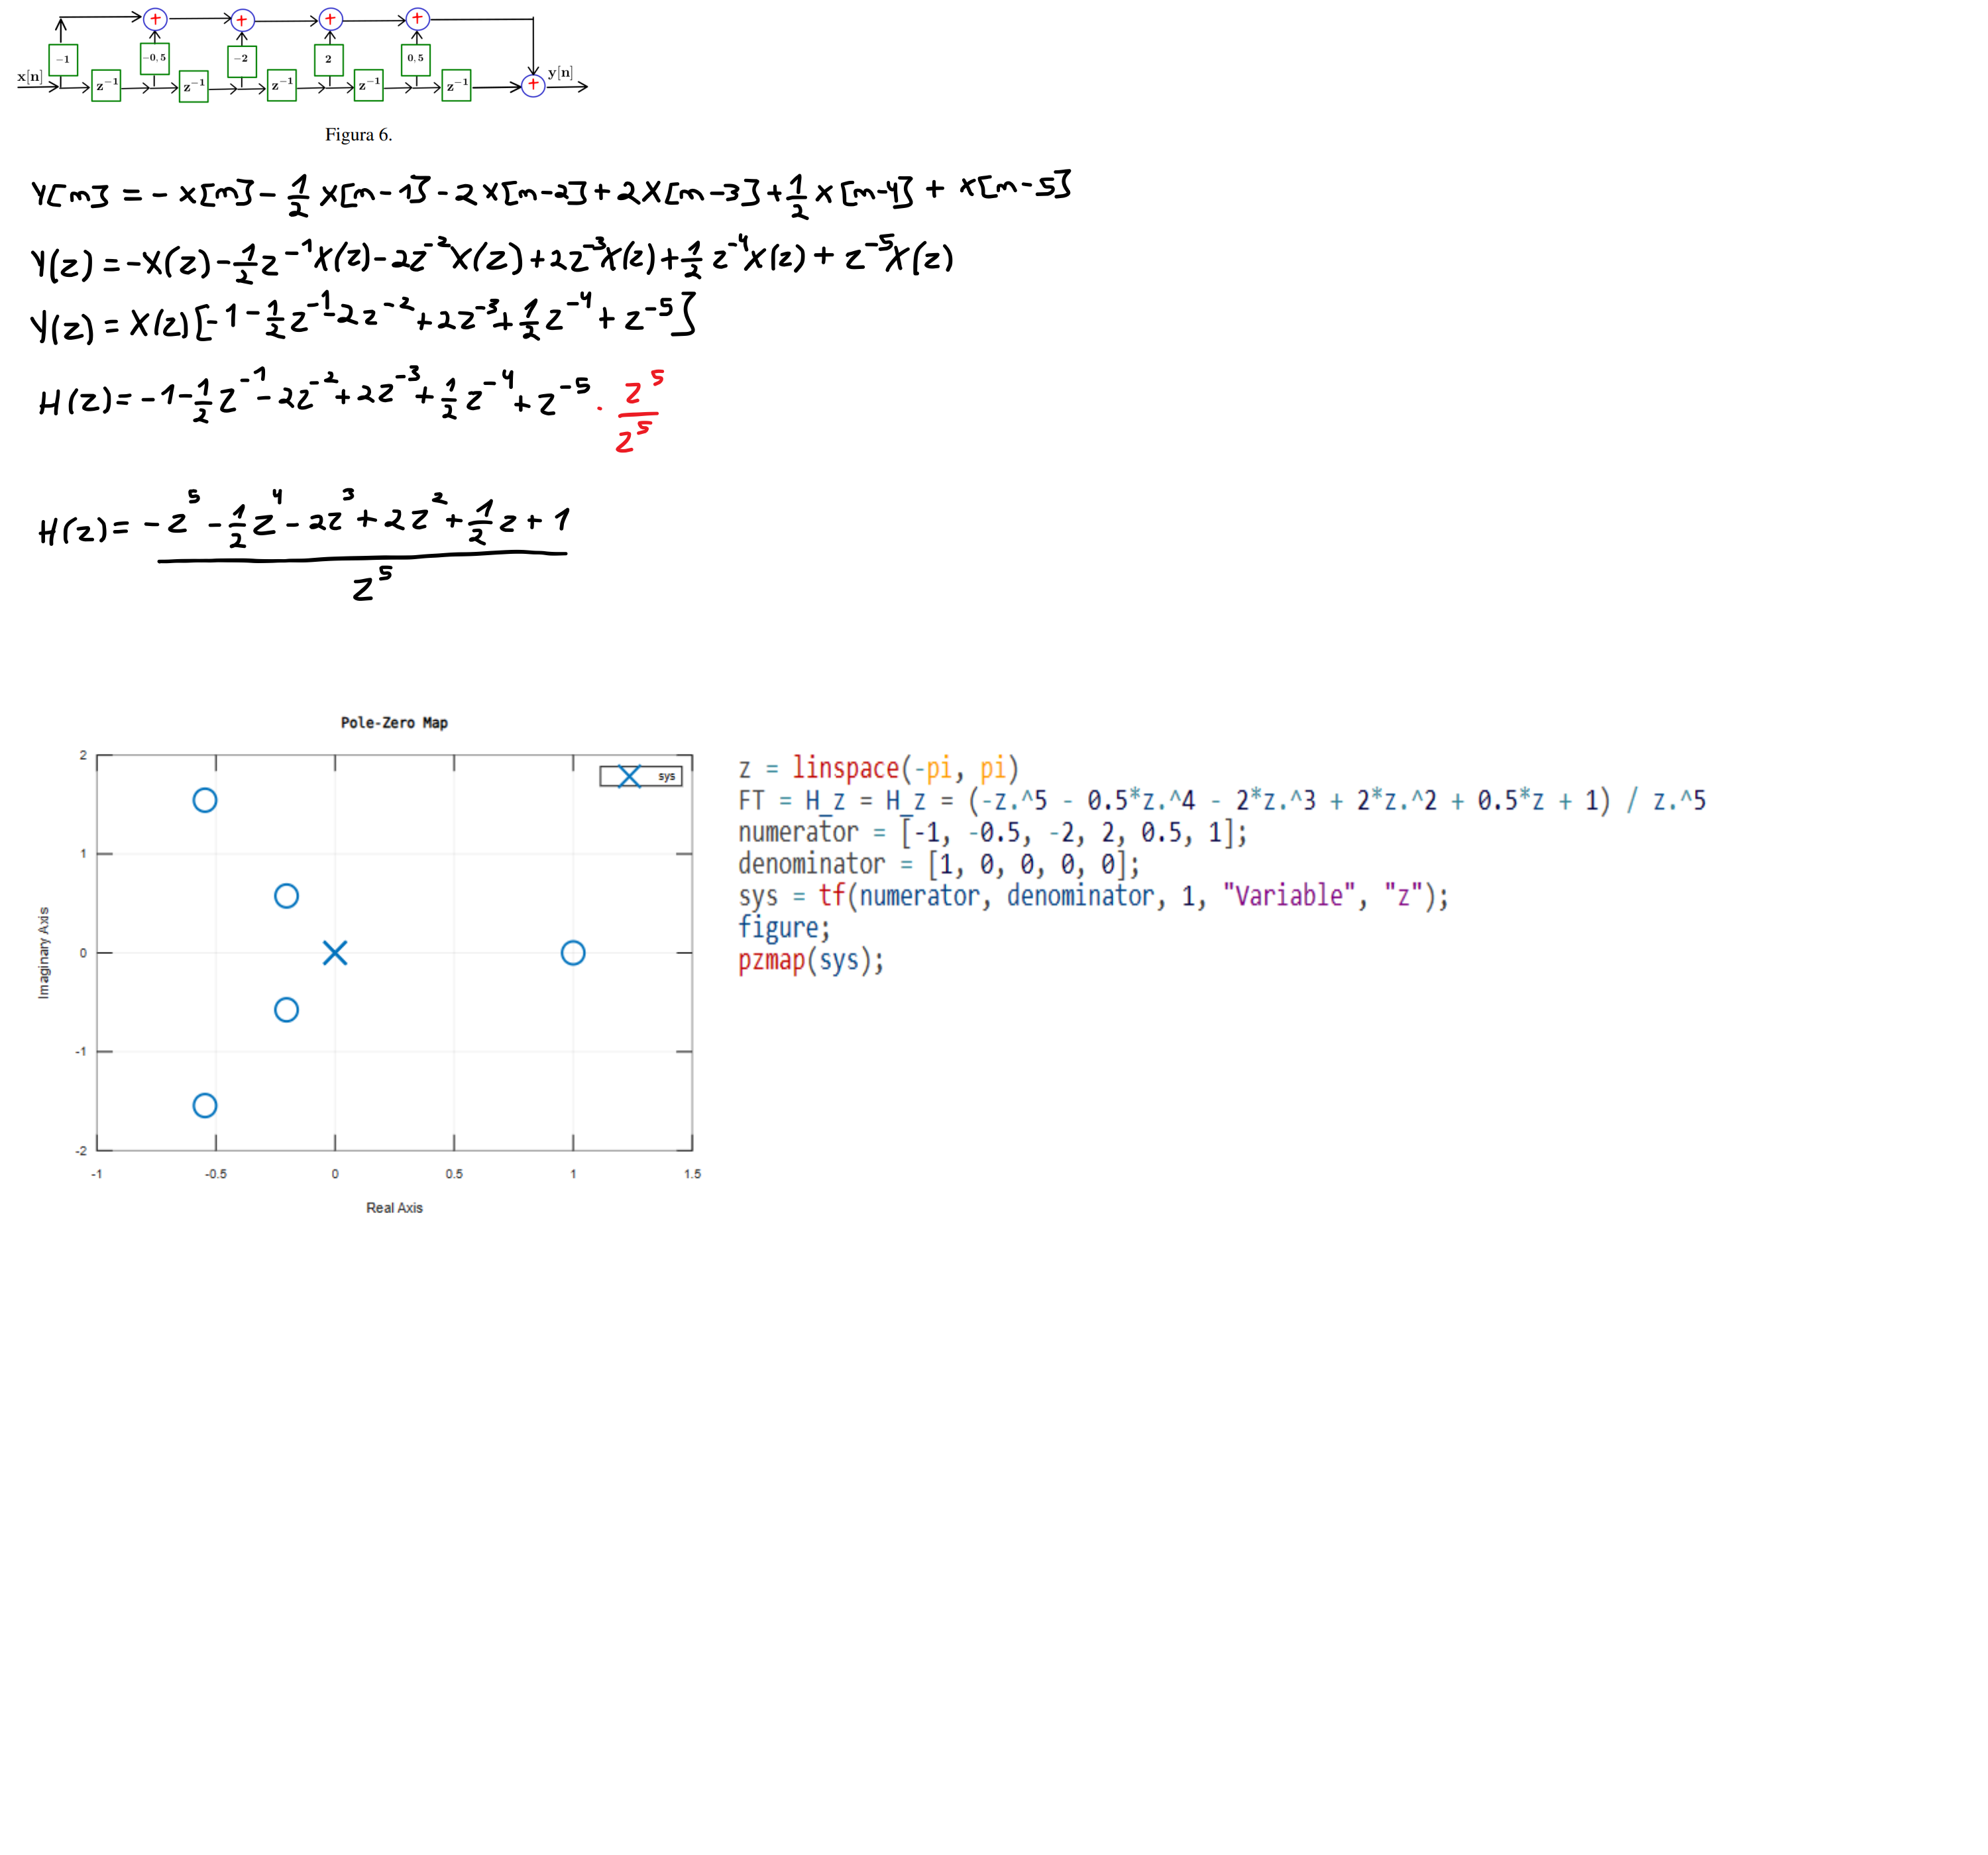 −1 −0,5 −2 2 0,5
x[n] z⁻¹ z⁻¹ z⁻¹ z⁻¹ z⁻¹ y[n]
+ + + + +
Figura 6.
Y[n] = - x[n] - 1/2 x[n-1] - 2x[n-2] + 2x[n-3] + 1/2 x[n-4] + x[n-5]
Y(z) = -X(z) - 1/2 z⁻¹X(z) - 2z⁻²X(z) + 2z⁻³X(z) + 1/2 z⁻⁴X(z) + z⁻⁵X(z)
Y(z) = X(z)[-1 - 1/2 z⁻¹ - 2z⁻² + 2z⁻³ + 1/2 z⁻⁴ + z⁻⁵]
H(z) = -1 - 1/2 z⁻¹ - 2z⁻² + 2z⁻³ + 1/2 z⁻⁴ + z⁻⁵ · z⁵/z⁵
H(z) = -z⁵ - 1/2 z⁴ - 2z³ + 2z² + 1/2 z + 1
z⁵
Pole-Zero Map
sys
2
1
0
-1
-2
Imaginary Axis
-1 -0.5 0 0.5 1 1.5
Real Axis
z = linspace(-pi, pi)
FT = H_z = H_z = (-z.^5 - 0.5*z.^4 - 2*z.^3 + 2*z.^2 + 0.5*z + 1) / z.^5
numerator = [-1, -0.5, -2, 2, 0.5, 1];
denominator = [1, 0, 0, 0, 0];
sys = tf(numerator, denominator, 1, "Variable", "z");
figure;
pzmap(sys);